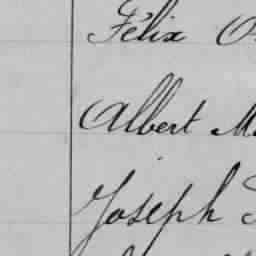 Félix
Albert
Joseph